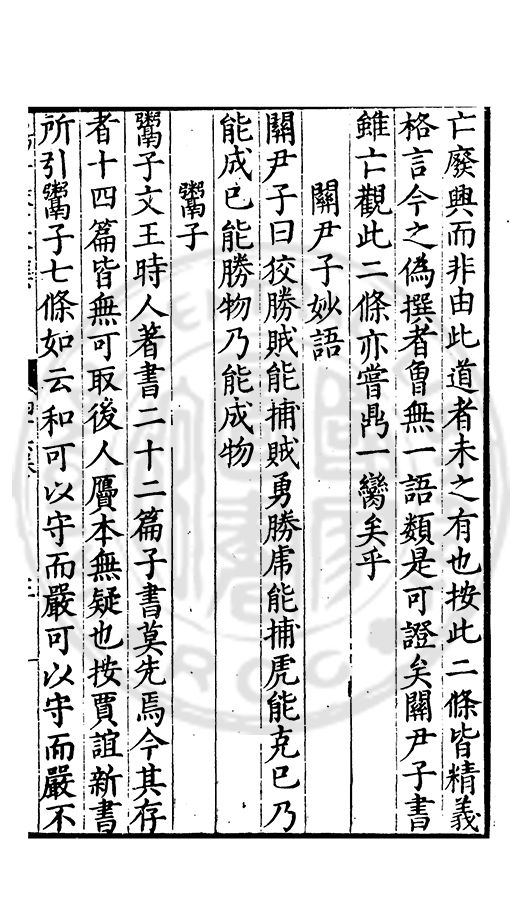 亡廢興而非由此道者未之有也按此二條皆精義
格言今之偽撰者曾無一語類是可證矣關尹子書
雖亡觀此二條亦嘗鼎一臠矣乎
關尹子妙語
關尹子曰狡勝賊能捕賊勇勝虎能捕虎能克已乃
能成已能勝物乃能成物
鬻子
鬻子文王時人著書二十二篇子書莫先焉今其存
者十四篇皆無可取後人贋本無疑也按賈誼新書
所引鬻子七條如云和可以守而嚴可以守而嚴不